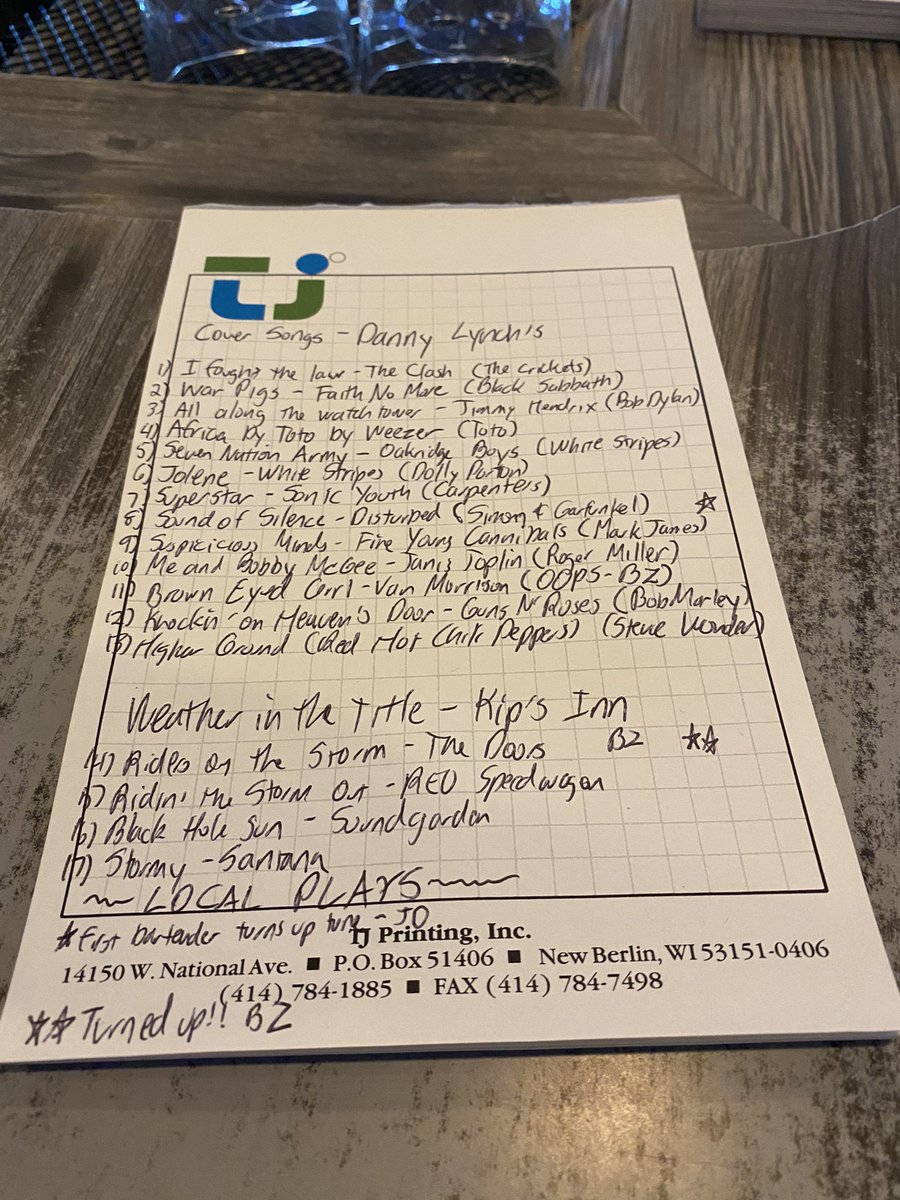 TJ
Cover Songs - Danny Lynch's
1) I fought the law - The Clash (The Crickets)
2) War Pigs - Faith No More (Black Sabbath)
3) All along the watch tower - Jimmy Hendrix (Bob Dylan)
4) Africa by Toto by Weezer (Toto)
5) Seven Nation Army - Oakridge Boys (White Stripes)
6) Jolene - White Stripes (Dolly Parton)
7) Superstar - Sonic Youth (Carpenters)
8) Sound of Silence - Disturbed (Simon & Garfunkel) ☆
9) Suspicious Minds - Fine Young Cannibals (Mark James)
10) Me and Bobby McGee - Janis Joplin (Roger Miller)
11) Brown Eyed Girl - Van Morrison (OOPS - BZ)
12) Knockin' on Heaven's Door - Guns N' Roses (Bob Marley)
13) Higher Ground (Red Hot Chili Peppers) (Stevie Wonder)
Weather in the Title - Kip's Inn
14) Riders on the Storm - The Doors BZ ☆☆
15) Ridin' the Storm Out - REO Speedwagon
16) Black Hole Sun - Soundgarden
17) Stormy - Santana
~ LOCAL PLAYS ~
☆ First bartender turns up tune - JO
TJ Printing, Inc.
14150 W. National Ave. ■ P.O. Box 51406 ■ New Berlin, WI 53151-0406
(414) 784-1885 ■ FAX (414) 784-7498
☆☆ Turned up!! BZ